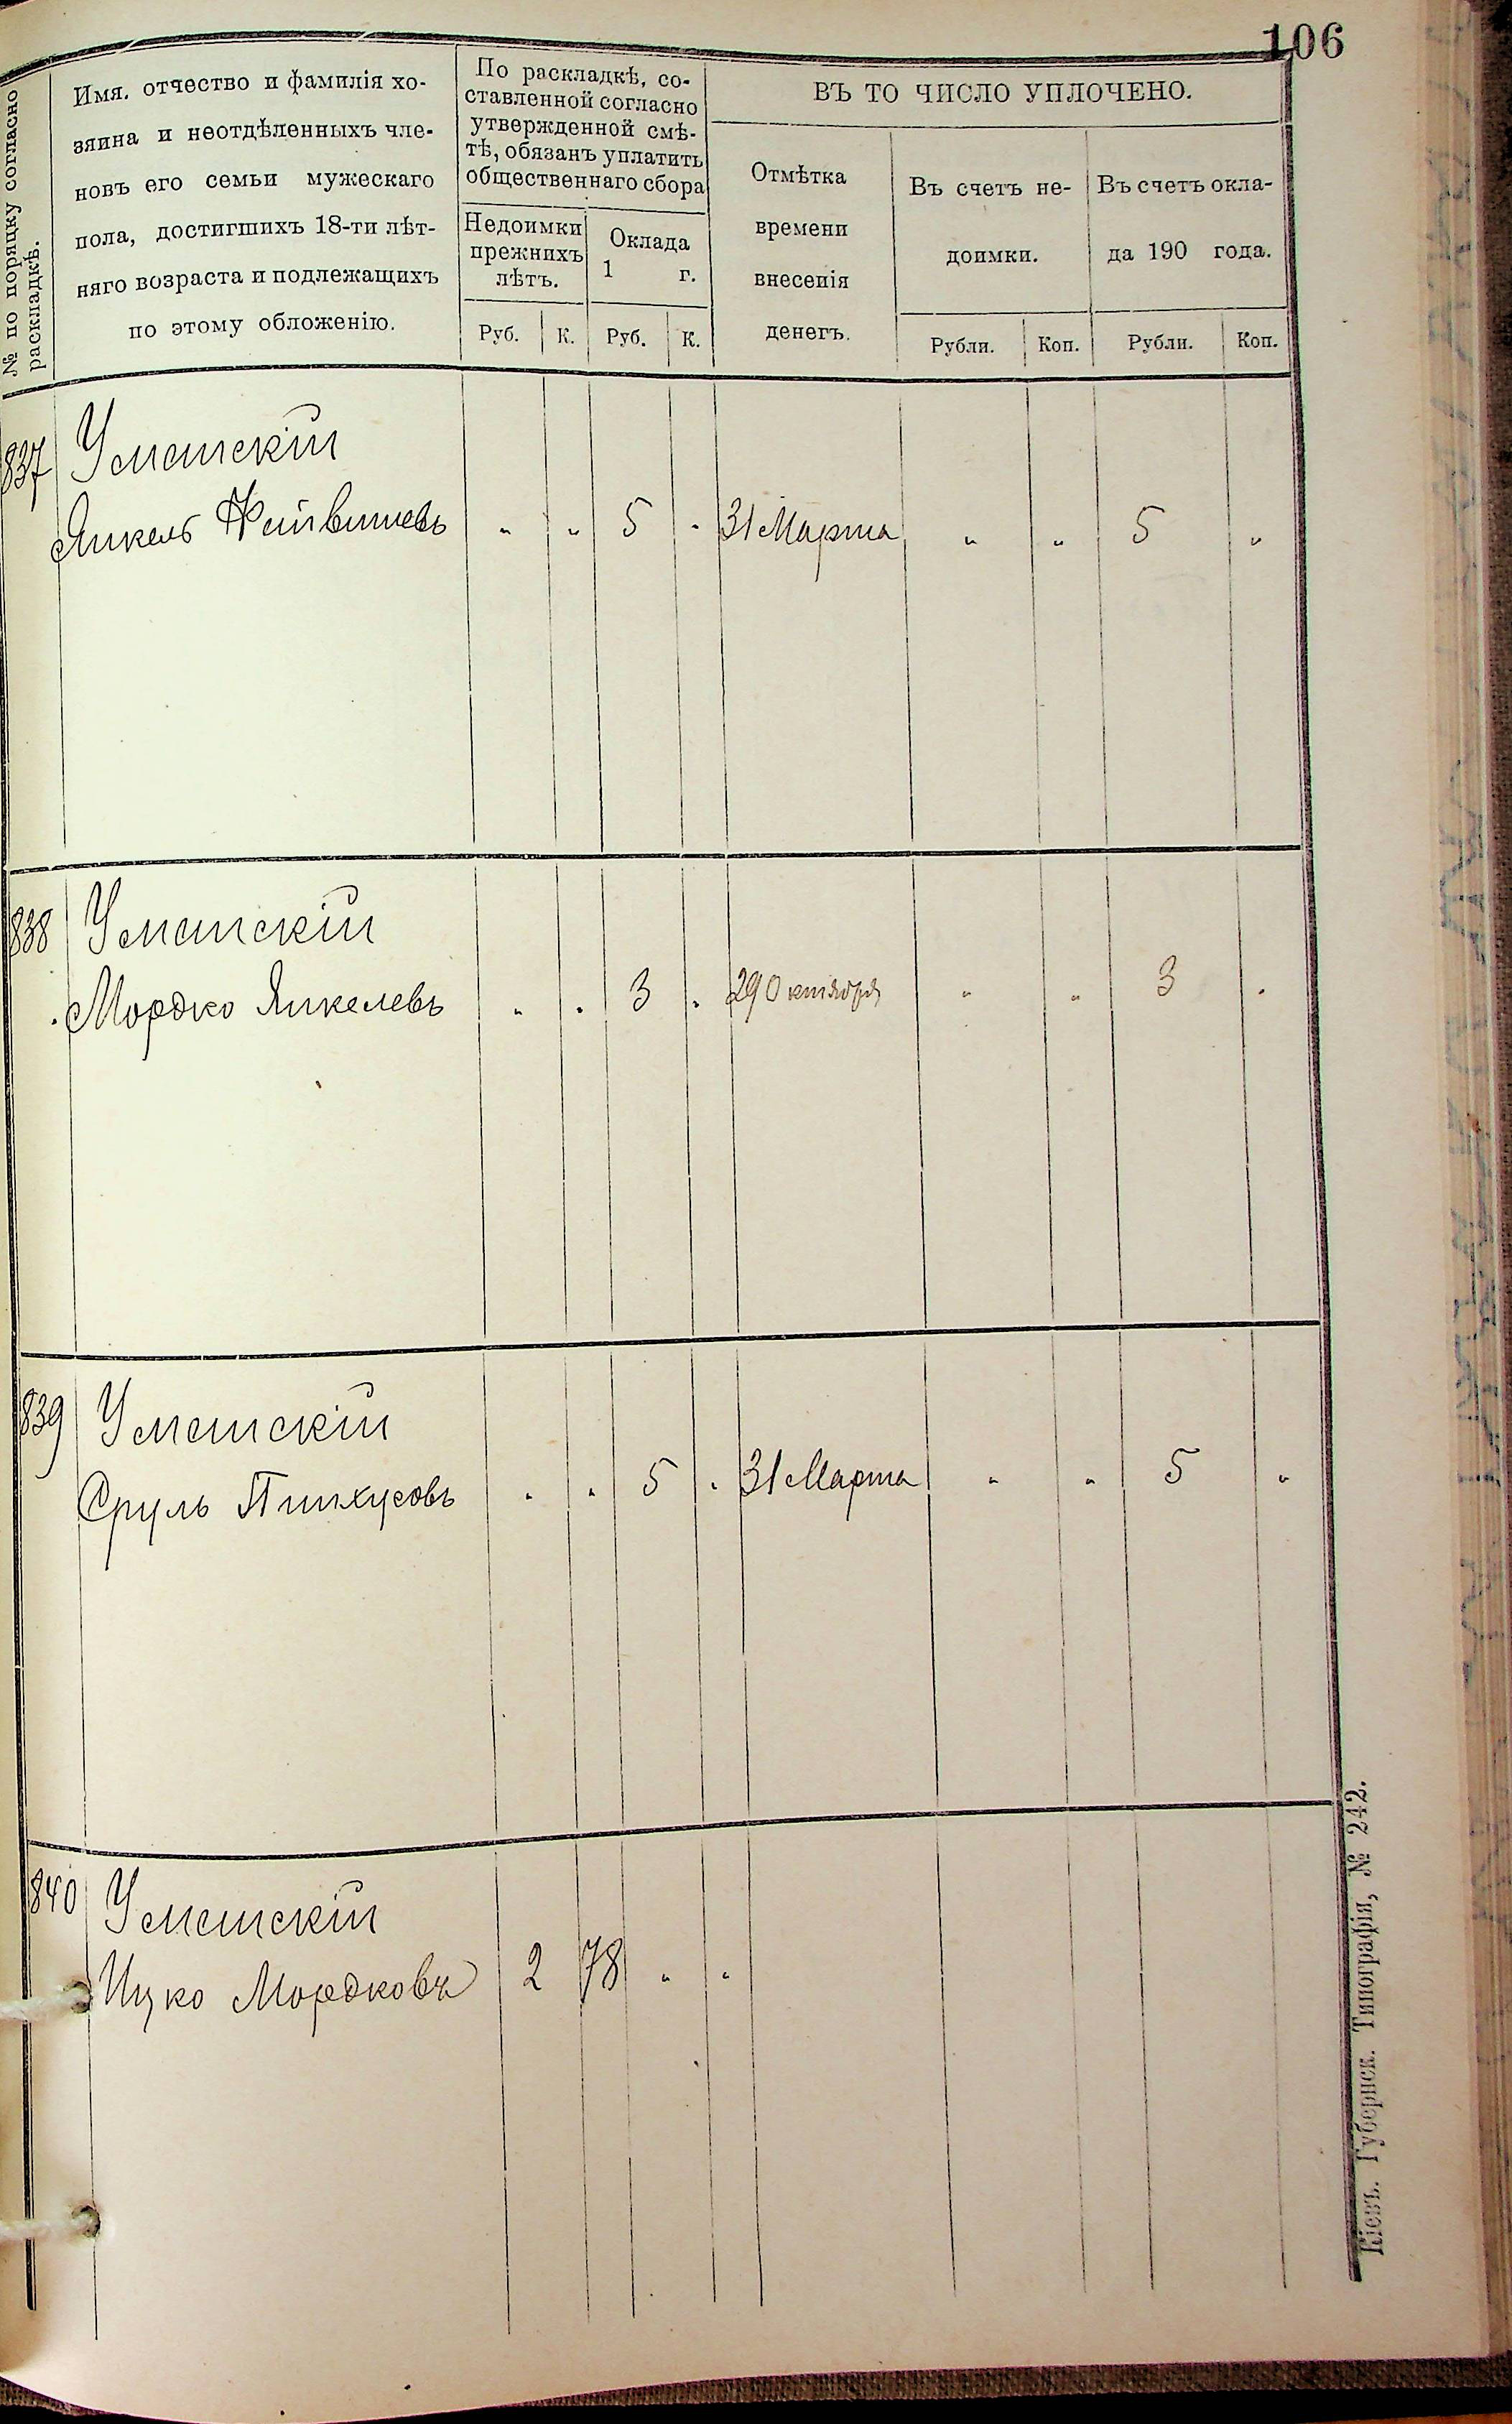 106
№ по порядку согласно
раскладкѣ.
Имя, отчество и фамилія хо-
зяина и неотдѣленныхъ чле-
новъ его семьи мужескаго
пола, достигшихъ 18-ти лѣт-
няго возраста и подлежащихъ
по этому обложенію.
По раскладкѣ, со-
ставленной согласно
утвержденной смѣ-
тѣ, обязанъ уплатить
общественнаго сбора
Недоимки
прежнихъ
лѣтъ.
Оклада
1 г.
Руб. К. Руб. К.
ВЪ ТО ЧИСЛО УПЛОЧЕНО.
Отмѣтка
времени
внесенія
денегъ.
Въ счетъ не-
доимки.
Въ счетъ окла-
да 190 года.
Рубли. Коп. Рубли. Коп.
837 Уманскій
Янкель Фейвишевъ " " 5 " 31 Марта " " 5 "
838 Уманскій
Мордко Янкелевъ " " 3 " 29 Октября " " 3 "
839 Уманскій
Сруль Пинхусовъ " " 5 " 31 Марта " " 5 "
840 Уманскій
Ицко Мордковъ 2 78 " "
Кіевъ. Губернск. Типографія, № 242.